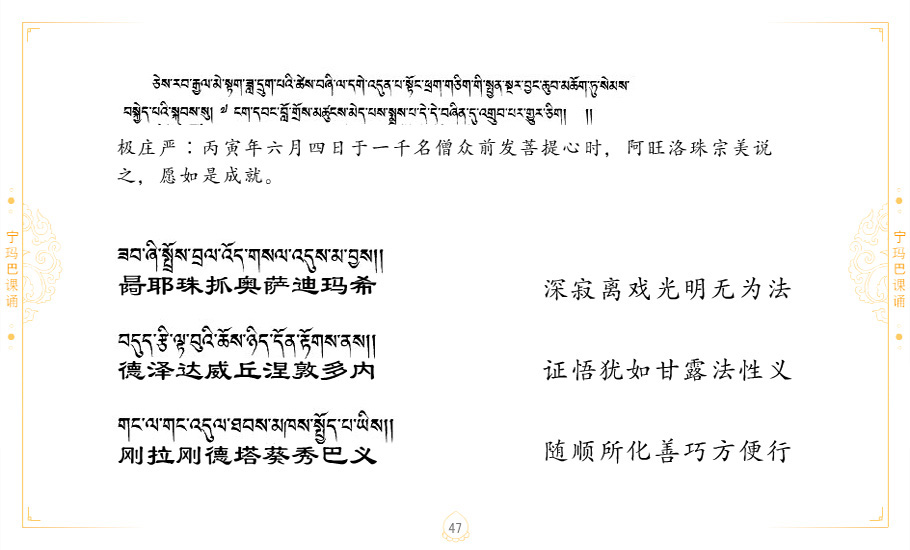 ཅེས་རབ་རྒྱལ་མེ་སྟག་ཟླ་དྲུག་པའི་ཚེས་བཞི་ལ་དགེ་འདུན་པ་སྟོང་ཕྲག་གཅིག་གི་སྤྱན་སྔར་བྱང་ཆུབ་མཆོག་ཏུ་སེམས་
བསྐྱེད་པའི་སྐབས་སུ། ༡ ངག་དབང་བློ་གྲོས་མཚུངས་མེད་པས་སྨྲས་པ་དེ་དེ་བཞིན་དུ་འགྲུབ་པར་གྱུར་ཅིག། །།
极庄严：丙寅年六月四日于一千名僧众前发菩提心时，阿旺洛珠宗美说
之，愿如是成就。
宁玛巴课诵
宁玛巴课诵
ཟབ་ཞི་སྤྲོས་བྲལ་འོད་གསལ་འདུས་མ་བྱས།།
昜耶珠抓奥萨迪玛希
深寂离戏光明无为法
བདུད་རྩི་ལྟ་བུའི་ཆོས་ཉིད་དོན་རྟོགས་ནས།།
德泽达威丘涅敦多内
证悟犹如甘露法性义
གང་ལ་གང་འདུལ་ཐབས་མཁས་སྤྱོད་པ་ཡིས།།
刚拉刚德塔葵秀巴义
随顺所化善巧方便行
47